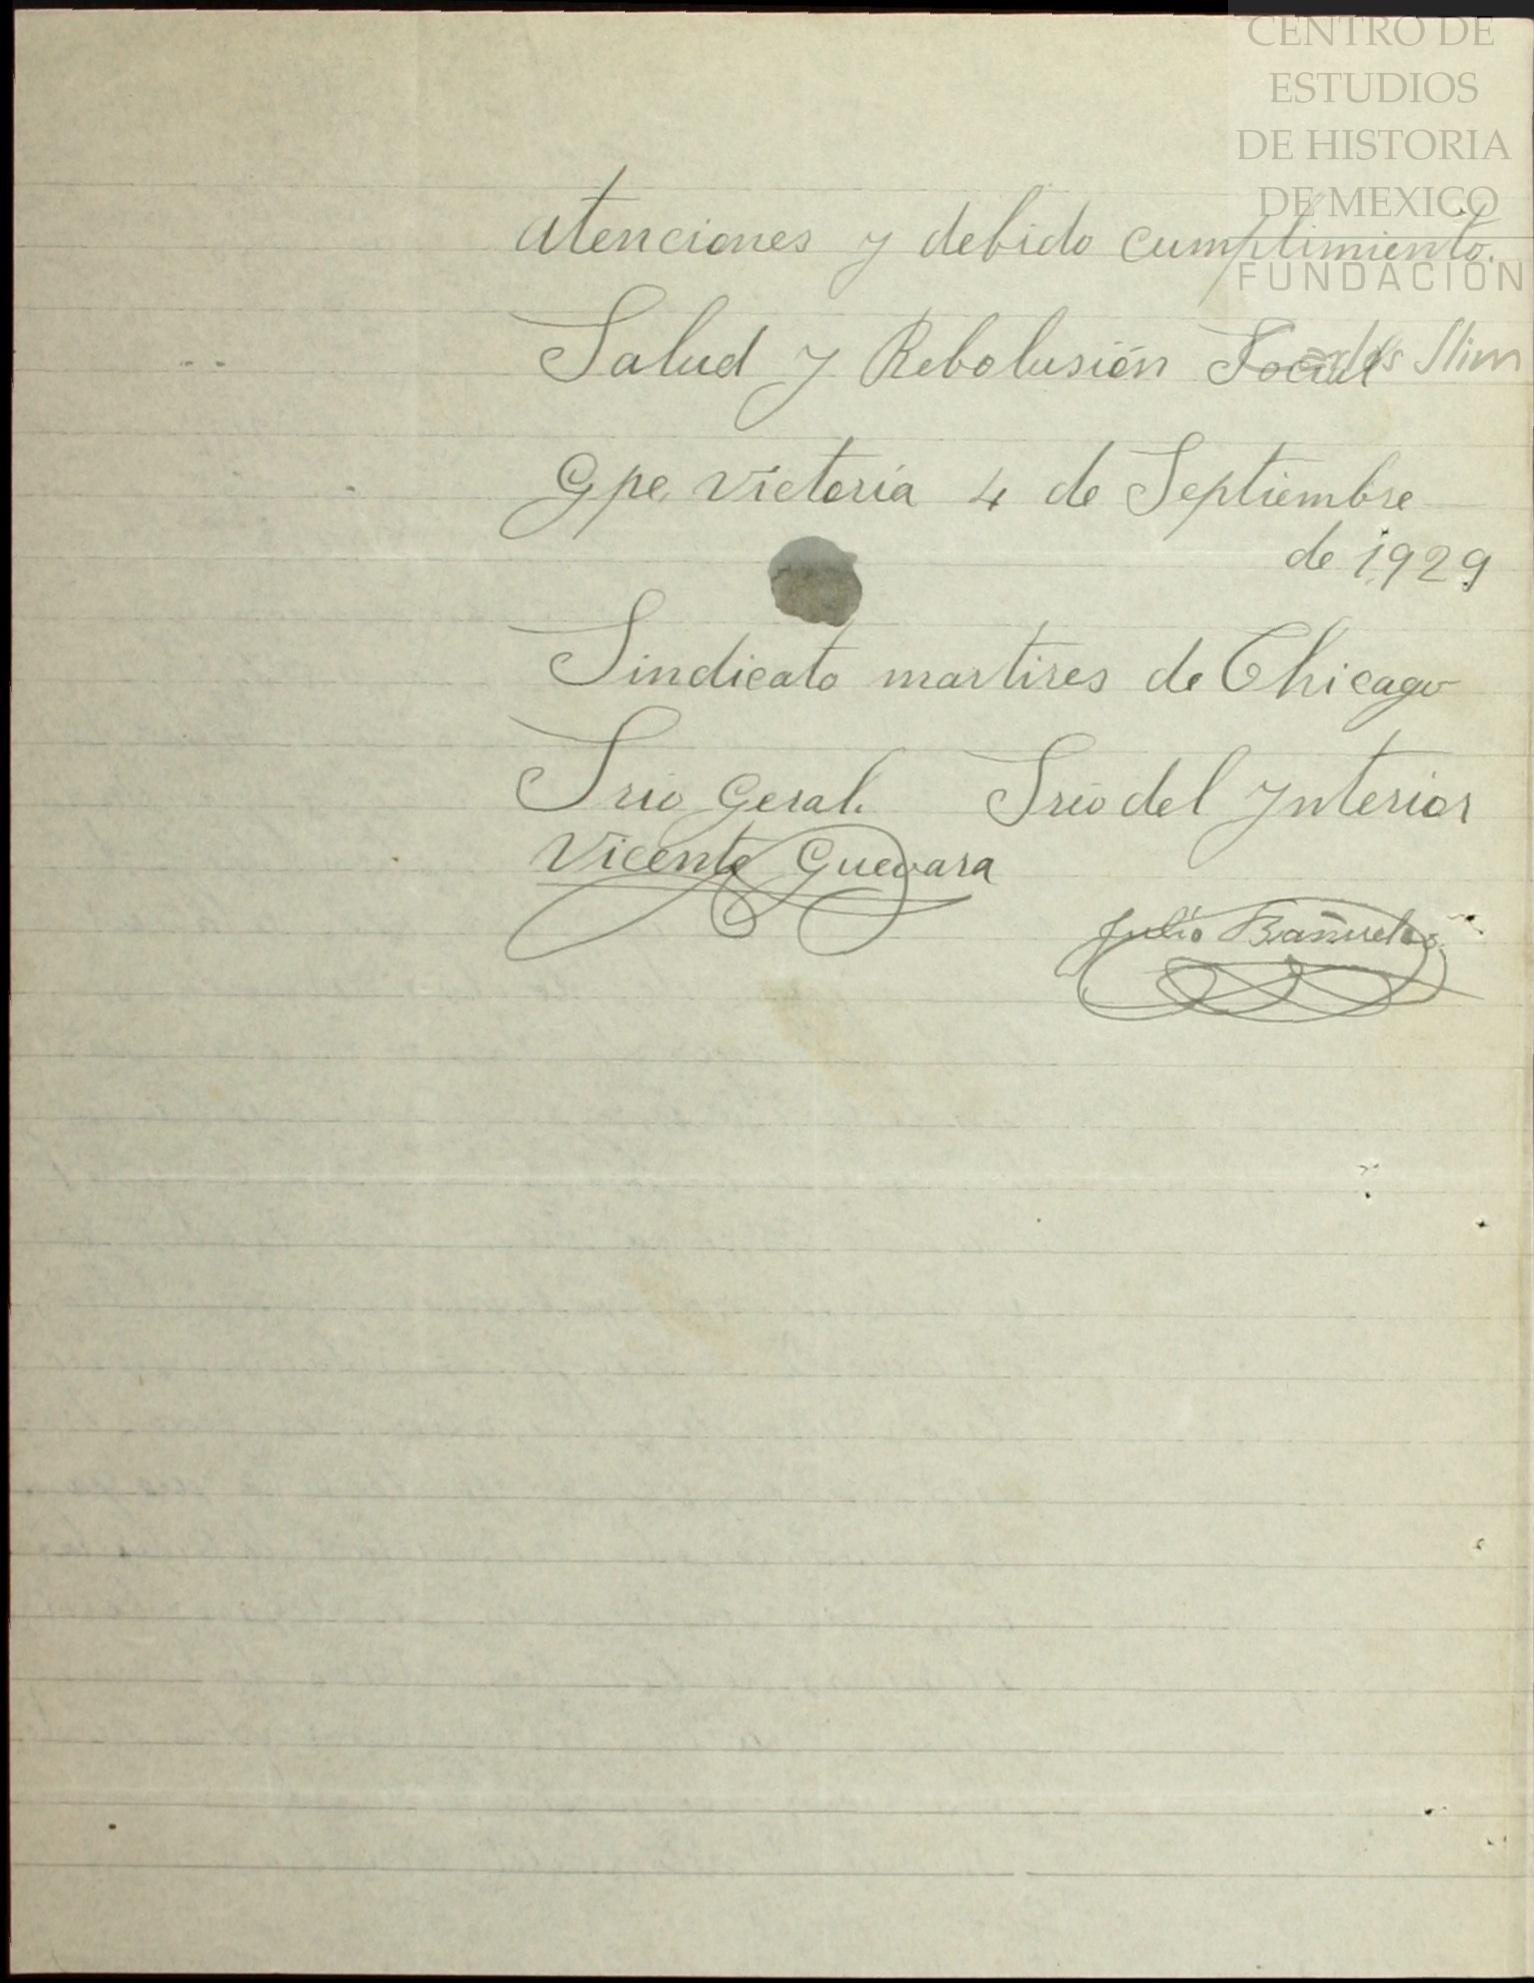 CENTRO DE
ESTUDIOS
DE HISTORIA
DE MEXICO
FUNDACIÓN
Carlos Slim
atenciones y debido cumplimiento.
Salud y Rebolusión Social
Gpe. Victoria 4 de Septiembre
de 1929
Sindicato martires de Chicago
Srio Geral. Srio del Ynterior
Vicente Guevara
Julio Bañuelos.